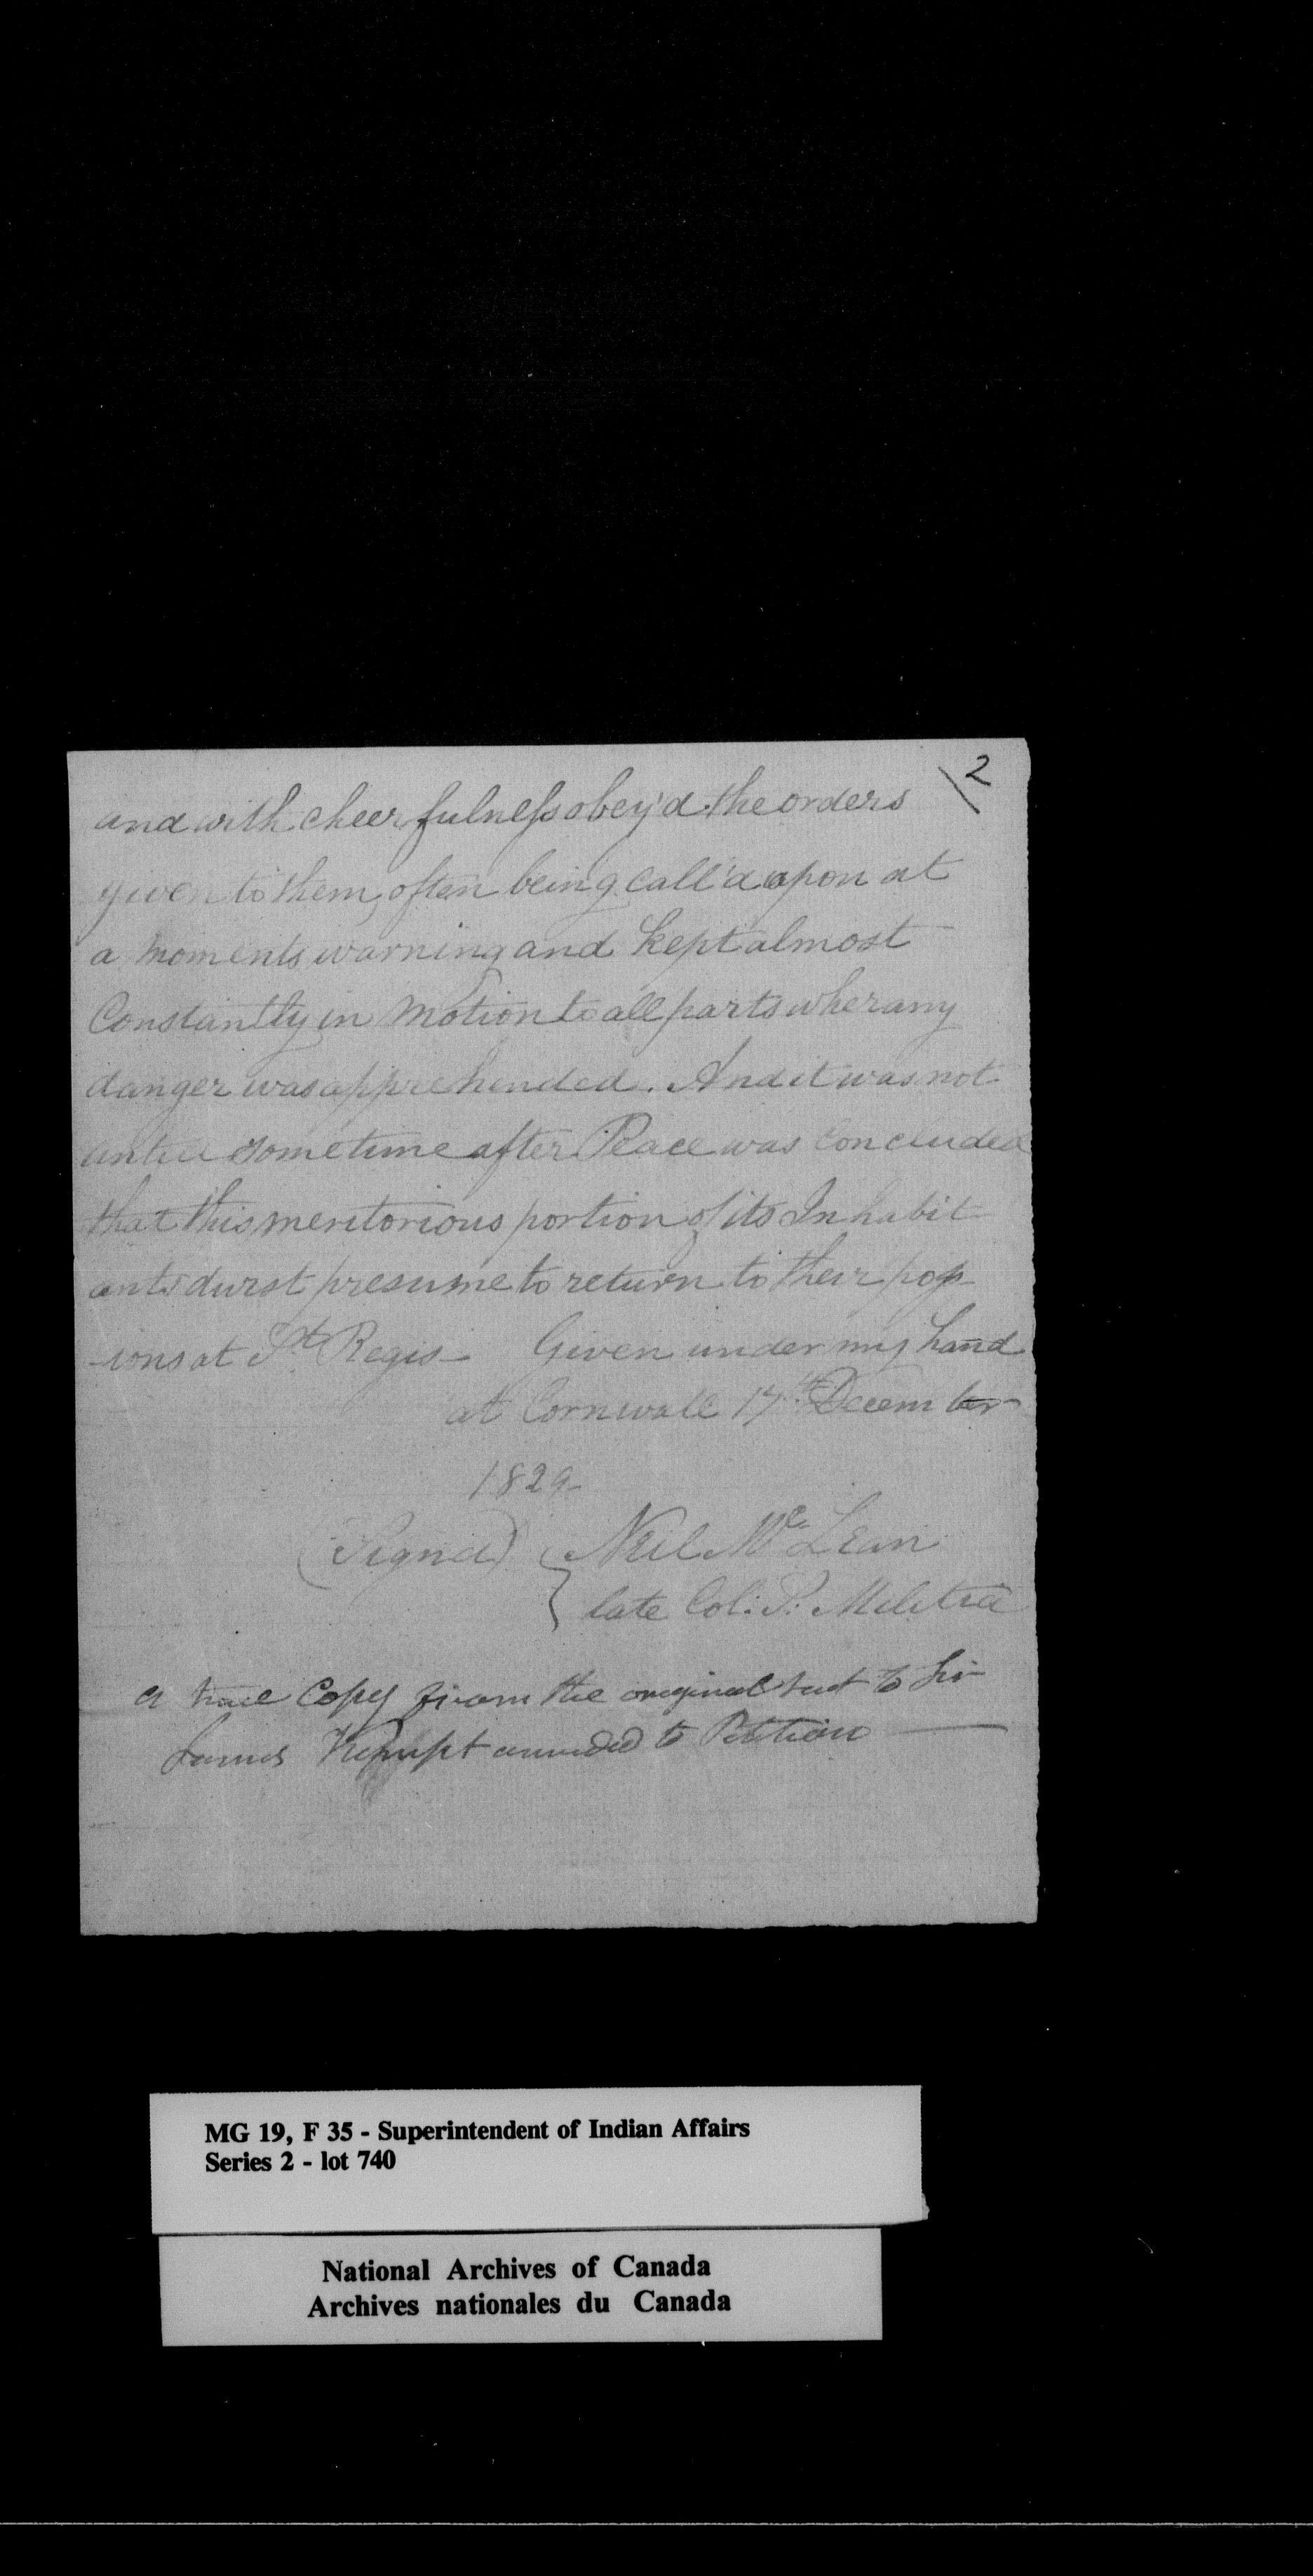 2
and with cheerfulness obey'd the orders
given to them, often being call'd upon at
a moments warning and kept almost
Constantly in motion to all parts wher any
danger was apprehended. And it was not
until some time after Peace was concluded
that this meritorious portion of its Inhabit
ants durst presume to return to their poss
-ions at St. Regis - Given under my hand
at Cornwall 17th December
1829-
(Signd) Neil McLean
late Col: S: Militia
a true Copy from the original sent to Sir
James Kempt annexed to Petition
MG 19, F 35 - Superintendent of Indian Affairs
Series 2 - lot 740
National Archives of Canada
Archives nationales du Canada